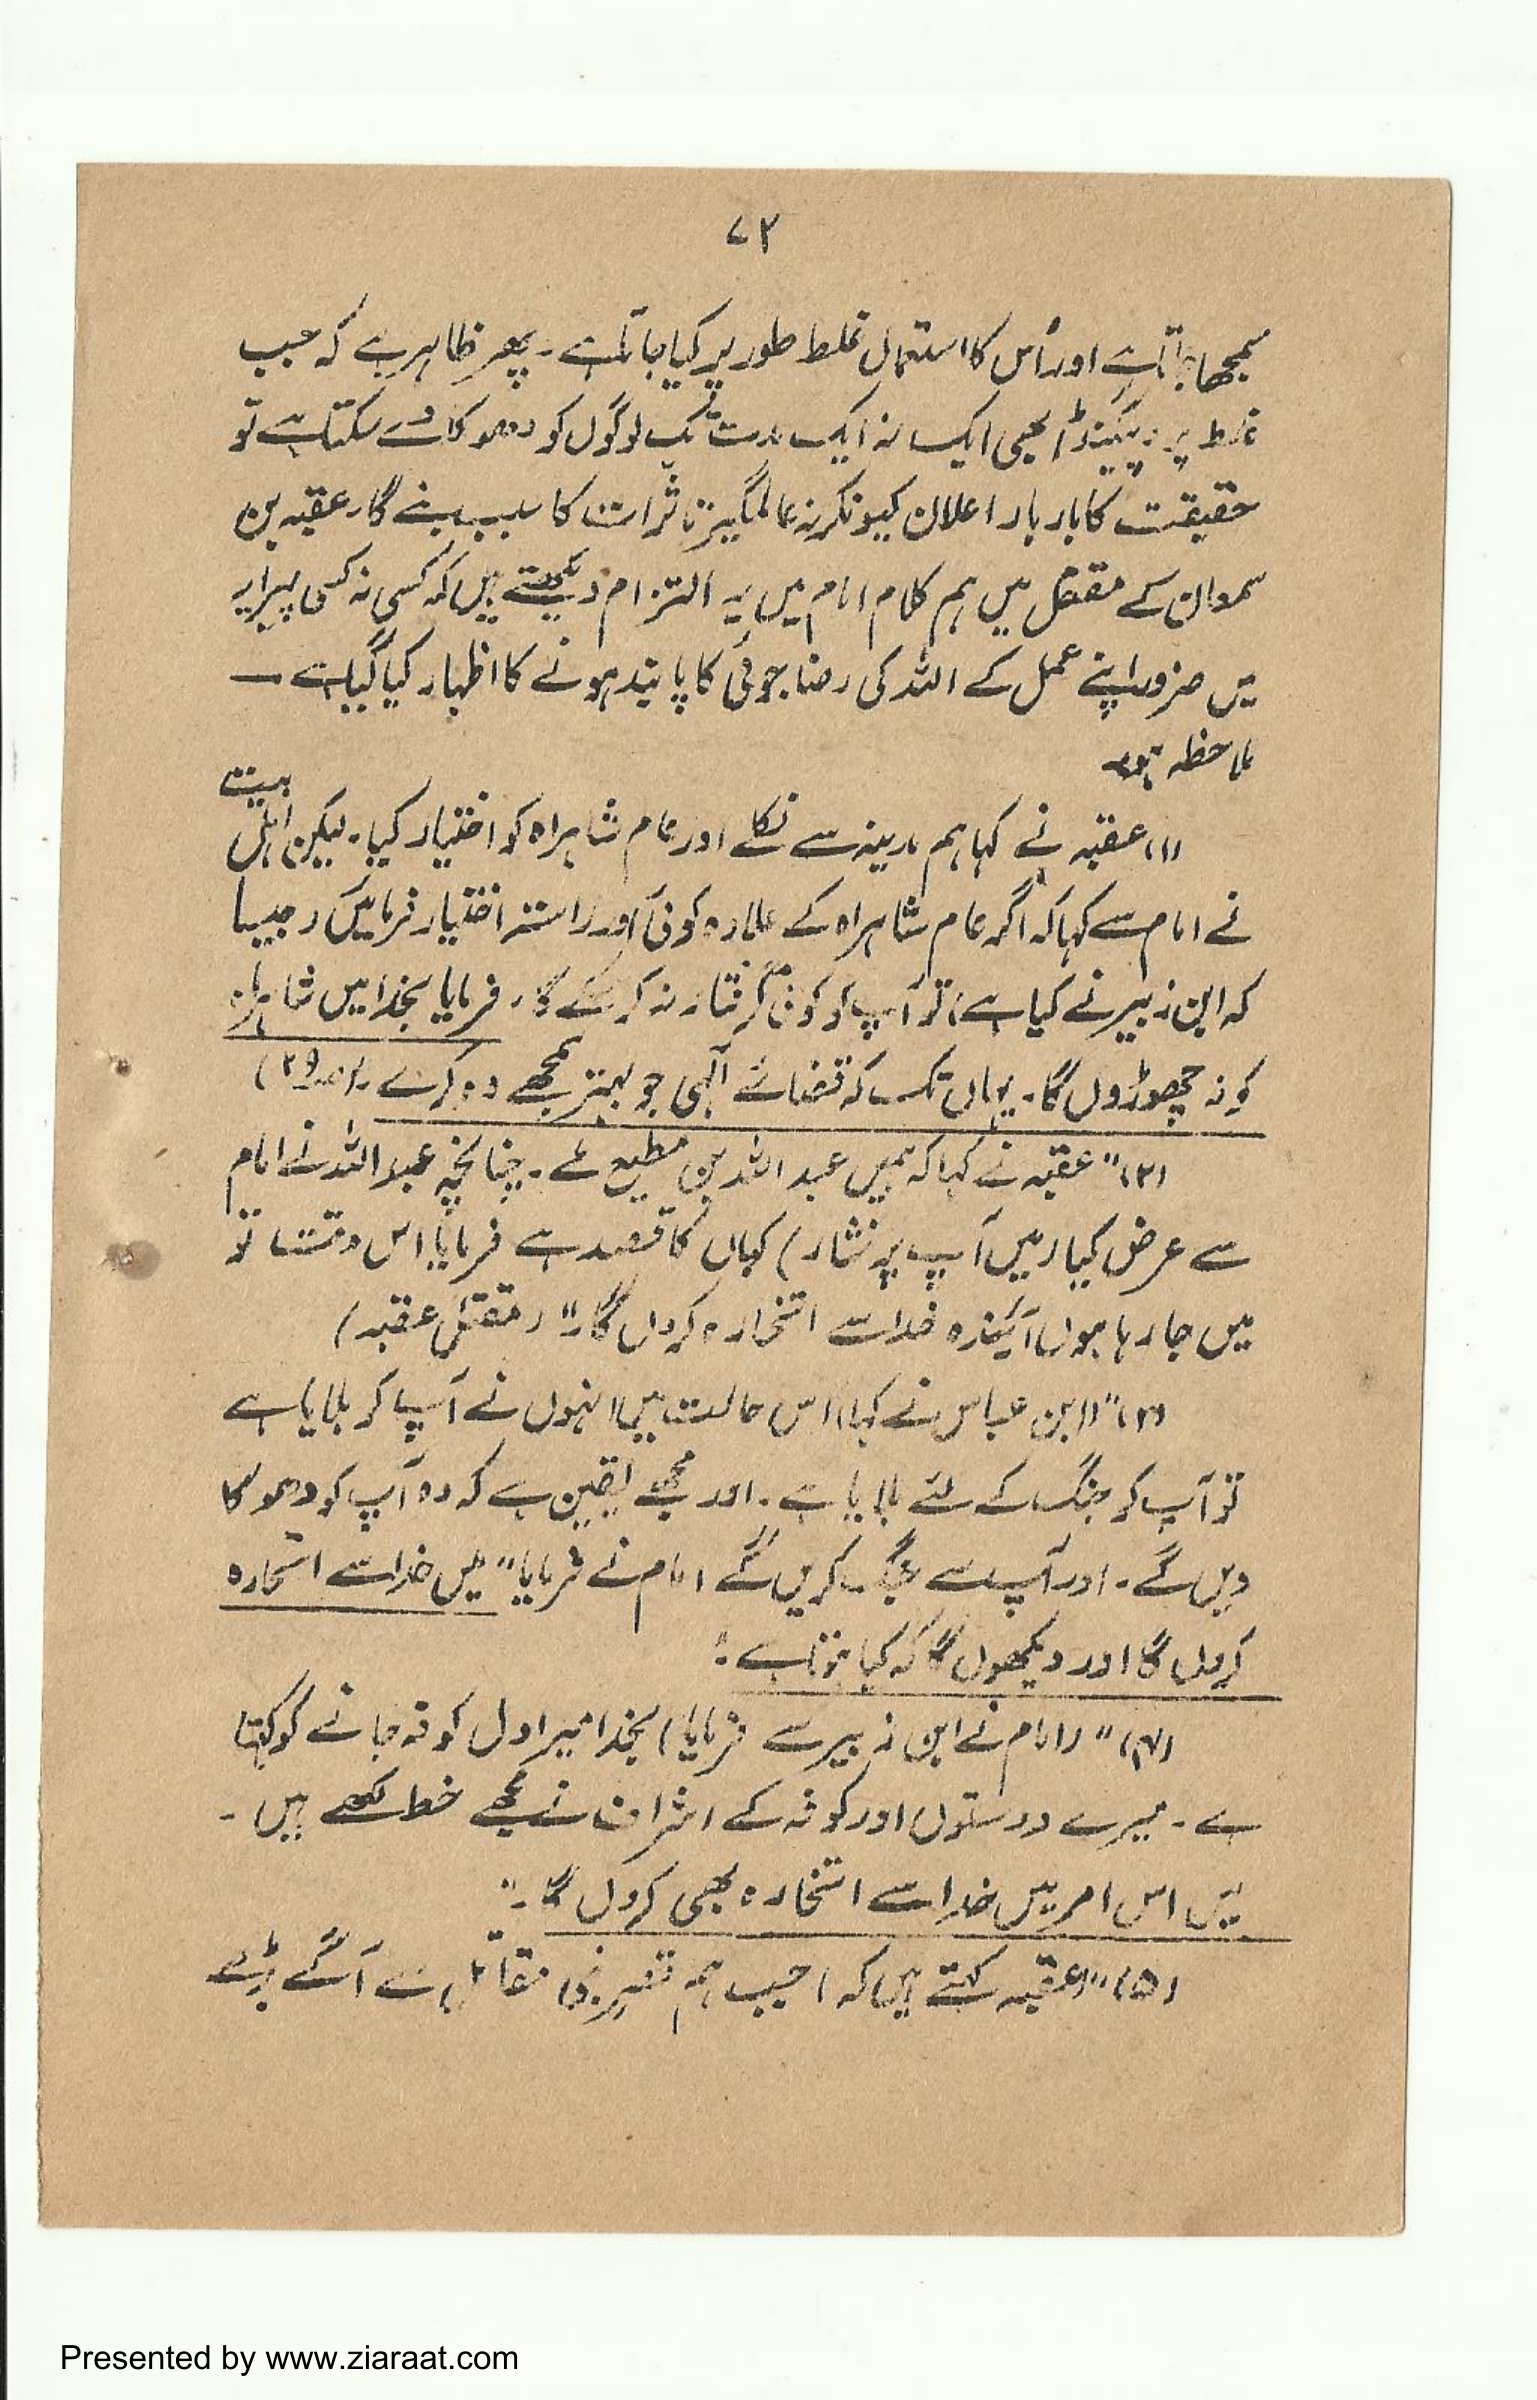 ۷۲
سمجھا جاتا ہے اور اُس کا استعمال غلط طور پر کیا جاتا ہے۔ پھر ظاہر ہے کہ جب
غلط پروپیگنڈا بھی ایک نہ ایک مدت تک لوگوں کو دھوکا دے سکتا ہے تو
حقیقت کا بار بار اعلان کیونکر نہ عالمگیر تاثرات کا سبب بنے گا۔ عقبہ بن
سمعان کے مقتل میں ہم کلام امام میں یہ التزام دیکھتے ہیں کہ کسی نہ کسی پیرایہ
میں ضرور اپنے عمل کے اللہ کی رضا جوئی کا پابند ہونے کا اظہار کیا گیا ہے ۔
ملاحظہ ہو۔
(۱) عقبہ نے کہا ہم مدینہ سے نکلے اور عام شاہراہ کو اختیار کیا۔ لیکن اہل بیت
نے امام سے کہا کہ اگر عام شاہراہ کے علاوہ کوئی اور راستہ اختیار فرمائیں (جیسا
کہ ابن زبیر نے کیا ہے) تو آپ کو کوئی گرفتار نہ کر سکے گا۔ فرمایا بخدا میں شاہراہ
کو نہ چھوڑوں گا۔ یہاں تک کہ قضائے الٰہی جو بہتر سمجھے وہ کرے
(۲) "عقبہ نے کہا کہ ہمیں عبد اللہ بن مطیع ملے۔ چنانچہ عبد اللہ نے امام
سے عرض کیا (میں آپ پر نثار) کہاں کا قصد ہے فرمایا اس وقت تو
میں جا رہا ہوں آئیندہ خدا سے استخارہ کروں گا۔" (مقتل عقبہ)
(۳) "(ابن عباس نے کہا) اس حالت میں انہوں نے آپ کو بلایا ہے
تو آپ کو جنگ کے لئے بلایا ہے۔ اور مجھے یقین ہے کہ وہ آپ کو دھوکا
دیں گے۔ اور آپ سے جنگ کریں گے امام نے فرمایا "میں خدا سے استخارہ
کروں گا اور دیکھوں گا کہ کیا ہوتا ہے۔"
(۴) "(امام نے ابن زبیر سے فرمایا) بخدا میرا دل کوفہ جانے کو کہتا
ہے۔ میرے دوستوں اور کوفہ کے اشراف نے مجھے خط لکھے ہیں۔
میں اس امر میں خدا سے استخارہ بھی کروں گا۔"
(۵) "(عقبہ کہتے ہیں کہ) جب ہم قصر بنی مقاتل سے آگے بڑھے
Presented by www.ziaraat.com